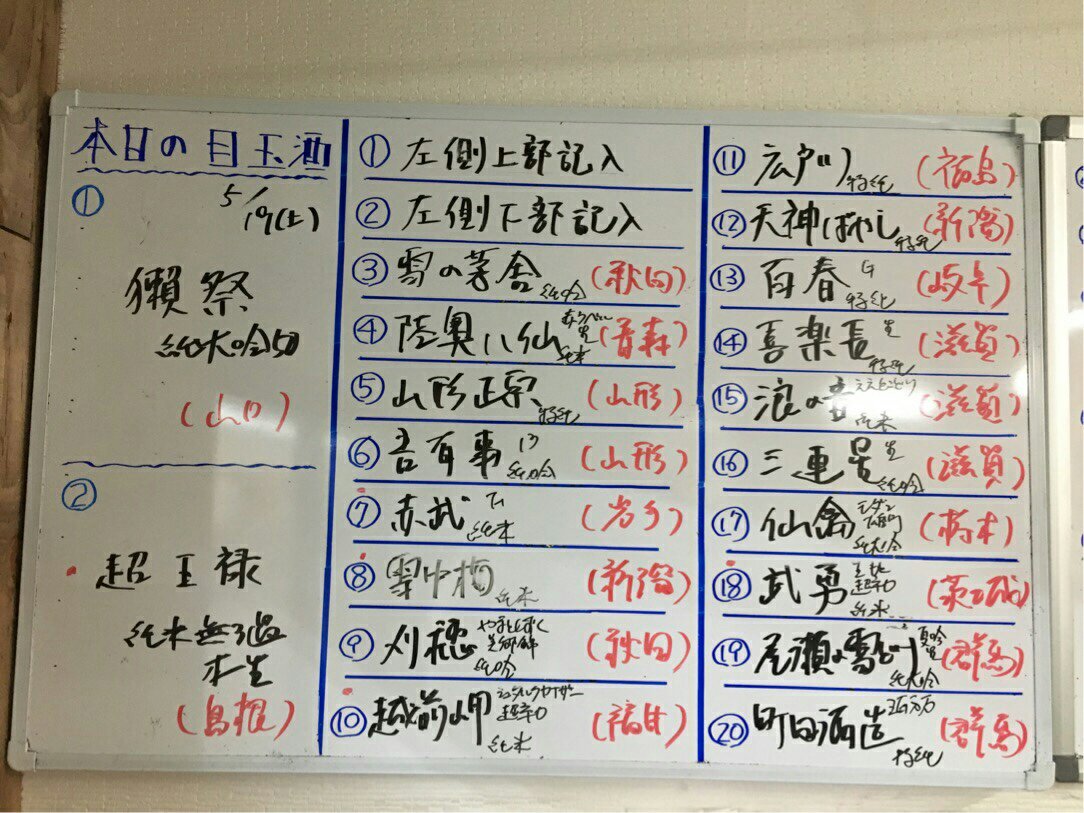 本日の目玉酒
5/19(土)
①
獺祭
純米吟50
(山口)
②
超王祿
純米無濾過
本生
(島根)
① 左側上部記入
② 左側下部記入
③ 雪の茅舎 純吟 (秋田)
④ 陸奥八仙 純米 (青森)
⑤ 山形正宗 特純 (山形)
⑥ 吾有事 純吟 (山形)
⑦ 赤武 純米 (岩手)
⑧ 雪中梅 純米 (新潟)
⑨ 刈穂 純吟 (秋田)
⑩ 越前岬 超辛口 純米 (福井)
⑪ 広戸川 特純 (福島)
⑫ 天神ばやし 特純 (新潟)
⑬ 百春 G 特純 (岐阜)
⑭ 喜楽長 生 特純 (滋賀)
⑮ 浪の音 ええとこどり 純米 (滋賀)
⑯ 三連星 生 純吟 (滋賀)
⑰ 仙禽 モダン 純大吟 (栃木)
⑱ 武勇 超辛口 純米 (茨城)
⑲ 尾瀬の雪どけ 夏吟 純大吟 (群馬)
⑳ 町田酒造 特純 (群馬)